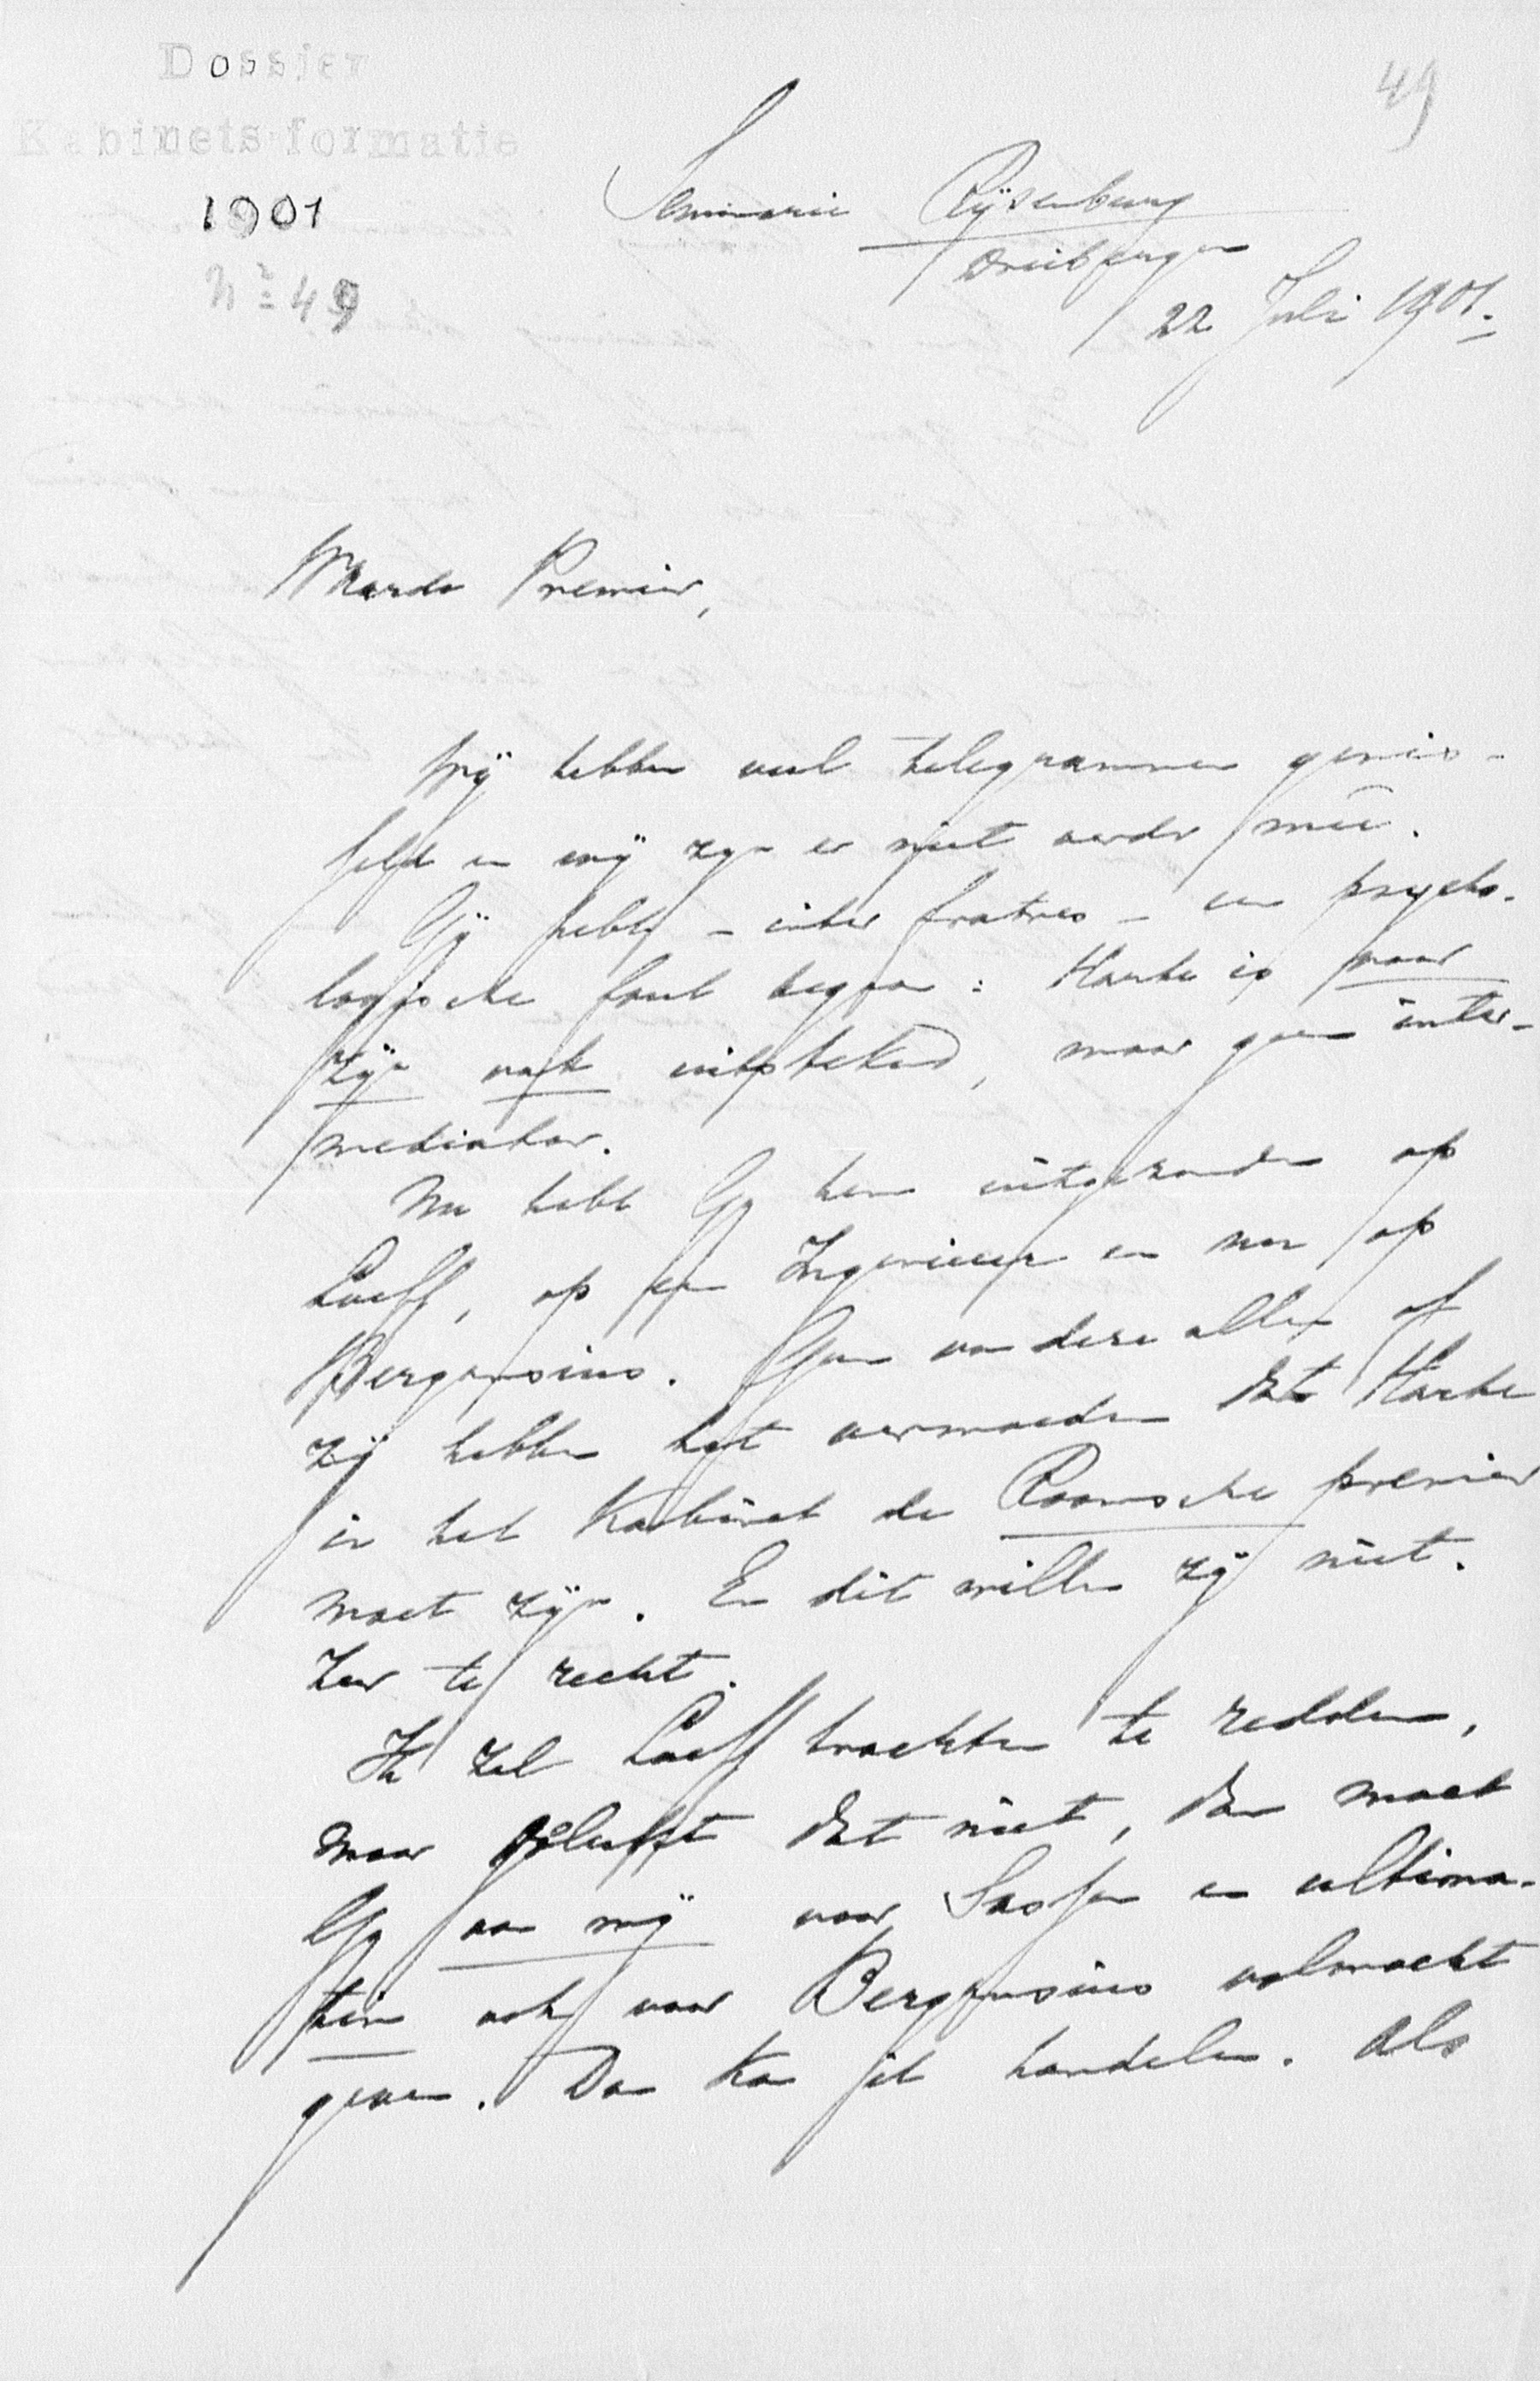 Dossier
Kabinetsformatie
1901
No 49
49
Seminarie Rijsenburg
Driebergen
22 Juli 1901.
Waarde Premier,
Wij hebben veel telegrammen gewis-
seld en wij zijn er niet verder mee.
Gij hebt - inter fratres - een psycho-
logische fout begaan: Harte is voor
zijn vak uitstekend, maar geen inter-
mediator.
Nu hebt Gij hem uitgezonden op
Loeff, op een Ingenieur en nu op
Bergansius. Geen van deze allen of
zij hebben het vermoeden dat Harte
in het Kabinet de Roomsche premier
moet zijn. En dit willen zij niet.
Zeer te recht.
Ik zal Loeff trachten te redden,
maar gelukt dat niet, dan moet
Gij aan mij voor Sassen en ultima-
tim ook voor Bergansius volmacht
geven. Dan kan ik handelen. Als